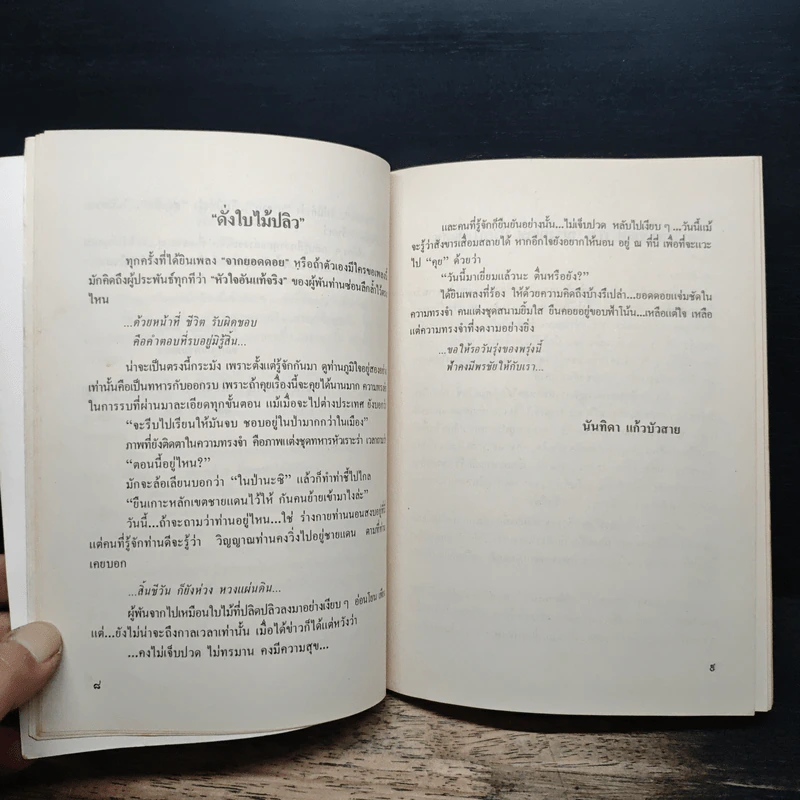 "ดั่งใบไม้ปลิว"
ทุกครั้งที่ได้ยินเพลง "จากยอดดอย" หรือถ้าตัวเองมีใครขอเพลงนี้
มักคิดถึงผู้ประพันธ์ทุกทีว่า "หัวใจอันแท้จริง" ของผู้พันท่านซ่อนลึกล้ำไว้
ไหน
...ด้วยหน้าที่ ชีวิต รับผิดชอบ
คือคำตอบที่รบอยู่มิรู้สิ้น...
น่าจะเป็นตรงนี้กระมัง เพราะตั้งแต่รู้จักกันมา ดูท่านภูมิใจอยู่สอง
เท่านั้นคือเป็นทหารกับออกรบ เพราะถ้าคุยเรื่องนี้จะคุยได้นานมาก
ในการรบที่ผ่านมาละเอียดทุกขั้นตอน แม้เมื่อจะไปต่างประเทศ ยังบอกว่า
"จะรีบไปเรียนให้มันจบ ชอบอยู่ในป่ามากกว่าในเมือง"
ภาพที่ยังติดตาในความทรงจำ คือภาพแต่งชุดทหารหัวเราะร่า
"ตอนนี้อยู่ไหน?"
มักจะล้อเลียนบอกว่า "ในป่านะซิ" แล้วก็ทำท่าชี้ไปไกล
"ยืนเกาะหลักเขตชายแดนไว้ให้ กันคนย้ายเข้ามาไงล่ะ"
วันนี้...ถ้าจะถามว่าท่านอยู่ไหน...ใช่ ร่างกายท่านนอนสงบอยู่ที่นี่
แต่คนที่รู้จักท่านดีจะรู้ว่า วิญญาณท่านคงวิ่งไปอยู่ชายแดน ตามที่ท่าน
เคยบอก
...สิ้นชีวัน ก็ยังห่วง หวงแผ่นดิน...
ผู้พันจากไปเหมือนใบไม้ที่ปลิดปลิวลงมาอย่างเงียบ ๆ อ่อนโยน
แต่...ยังไม่น่าจะถึงกาลเวลาเท่านั้น เมื่อได้ข่าวก็ได้แต่หวังว่า
...คงไม่เจ็บปวด ไม่ทรมาน คงมีความสุข...
๘
และคนที่รู้จักก็ยืนยันอย่างนั้น...ไม่เจ็บปวด หลับไปเงียบ ๆ ...วันนี้แม้
จะรู้ว่าสังขารเสื่อมสลายได้ หากอีกใจยังอยากให้นอน อยู่ ณ ที่นี่ เพื่อที่จะแวะ
ไป "คุย" ด้วยว่า
"วันนี้มาเยี่ยมแล้วนะ ตื่นหรือยัง?"
ได้ยินเพลงที่ร้อง ให้ด้วยความคิดถึงบ้างรึเปล่า...ยอดดอยแจ่มชัดใน
ความทรงจำ คนแต่งชุดสนามยิ้มใส ยืนคอยอยู่ขอบฟ้าโน้น...เหลือแต่ใจ เหลือ
แต่ความทรงจำที่งดงามอย่างยิ่ง
...ขอให้รอวันรุ่งของพรุ่งนี้
ฟ้าคงมีพรชัยให้กับเรา...
นันทิดา แก้วบัวสาย
๙